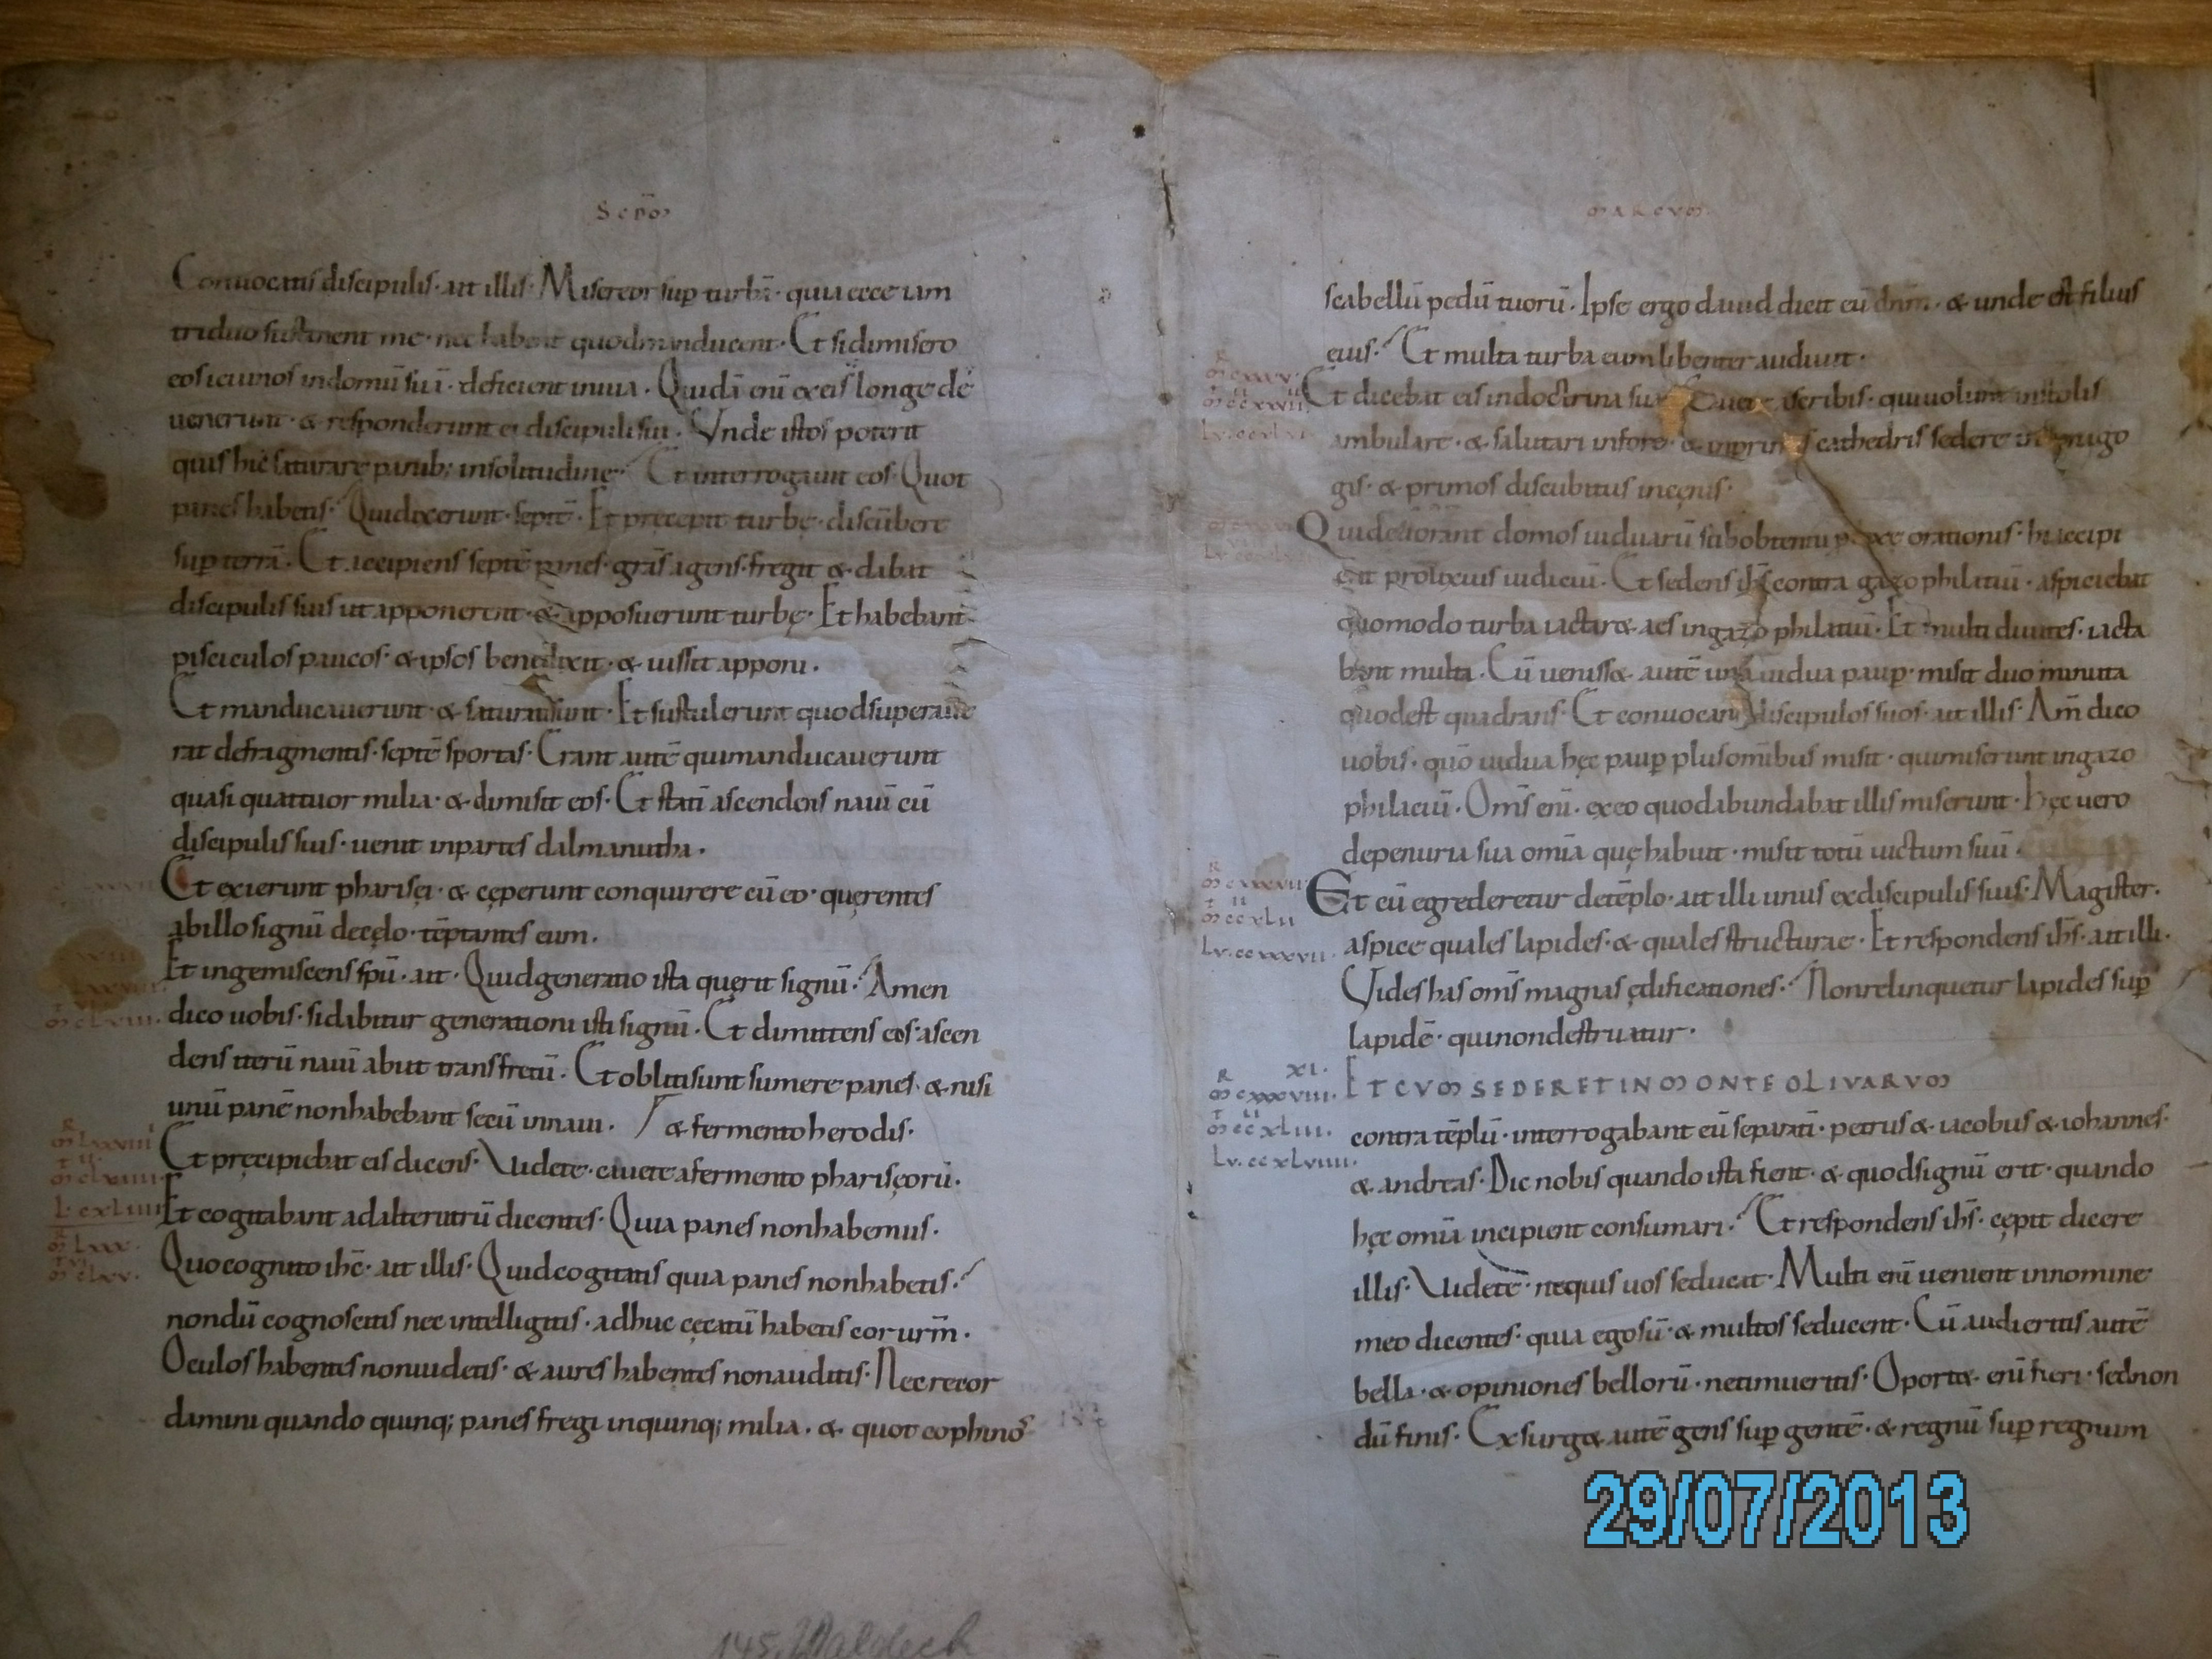 Secdm
Conuocatis discipulis· ait illis· Misereor sup turbā· quia ecce iam
triduo sustinent me· nec habent quodmanducent· Et sidimisero
eos ieiunos indomū suā· deficient inuia. Quidā enī exeis longe de
uenerunt· & responderunt ei discipulisui. Vnde istos poterit
quis hic saturare panib; insolitudine· Et interrogauit eos· Quot
panes habetis· Quidixerunt· septē· Et precepit turbę· discūbere
sup terrā. Et accipiens septē panes· grās agens· fregit & dabat
discipulis suis ut apponerent· & apposuerunt turbę· Et habebant
pisciculos paucos· & ipsos benedixit· & iussit apponi.
Et manducauerunt· & saturatisunt· Et sustulerunt quodsuperaue
rat defragmentis· septē sportas· Erant autē quimanducauerunt
quasi quattuor milia· & dimisit eos· Et statī ascendens nauī cū
discipulis suis· uenit inpartes dalmanutha.
Et exierunt pharisęi· & cęperunt conquirere cū eo· quęrentes
abillo signū decęlo· tēptantes eum.
Et ingemiscens spū· ait· Quidgeneratio ista quęrit signū· Amen
dico uobis· sidabitur generationi isti signū. Et dimittens eos· ascen
dens iterū nauī abiit transfretū. Et oblitisunt sumere panes· & nisi
unū panē nonhabebant secū innaui. / & fermento herodis·
Et pręcipiebat eis dicens· Videte· cauete afermento pharisęorū.
Et cogitabant adalterutrū dicentes· Quia panes nonhabemus.
Quocognito ihc̄· ait illis· Quidcogitatis quia panes nonhabetis·
nondū cognoscitis nec intelligitis· adhuc cęcatū habetis cor urm̄.
Oculos habentes nonuidetis· & aures habentes nonauditis· Necrecor
damini quando quinq; panes fregi inquinq; milia. & quot cophinos
145 Waldeck
MARCUM
scabellū pedū tuorū. Ipse ergo dauid dicit eū dnm̄· & unde est filius
eius· Et multa turba eumlibenter audiuit·
Et dicebat eis indoctrina sua Cauete ascribis· quiuolunt instolis
ambulare· & salutari inforo· & inprimis cathedris sedere insynago
gis· & primos discubitus incęnis·
Quideuorant domos uiduarū subobtentu prolixe orationis· hiaccipi
ent prolixius iudiciū. Et sedens ihs̄ contra gazophilatiū· aspiciebat
quomodo turba iactar& aes ingazophilatiū. Et multi diuites· iacta
bant multa. Cū uenisset autē una uidua paup· misit duo minuta
quodest quadrans· Et conuocans discipulos suos· ait illis· Am̄ dico
uobis· quō uidua hęc paup plusomībus misit· quimiserunt ingazo
philaciū. Oms̄ enī· exeo quodabundabat illis miserunt· Hęc uero
depenuria sua omīa quę habuit· misit totū uictum suū·
Et cū egrederetur detēplo· ait illi unus exdiscipulis suis· Magister·
aspice quales lapides· & quales structurae· Et respondens ihs̄· ait illi·
Vides has oms̄ magnas ędificationes· Nonrelinquetur lapides sup
lapidē· quinondestruatur·
XI. ET CUM SEDERET IN MONTE OLIVARUM
contra tēplū· interrogabant eū separatī· petrus & iacobus & iohannes·
& andreas· Dic nobis quando ista fient· & quodsignū erit· quando
hęc omīa incipient consumari· Et respondens ihs̄· cępit dicere
illis· Videte· nequis uos seducat· Multi enī uenient innomine
meo dicentes· quia egosū· & multos seducent· Cū audieritis autē
bella· & opiniones bellorū· netimueritis· Oport& enī fieri· sednon
dū finis· Exsurg& autē gens sup gentē· & regnū sup regnum
29/07/2013